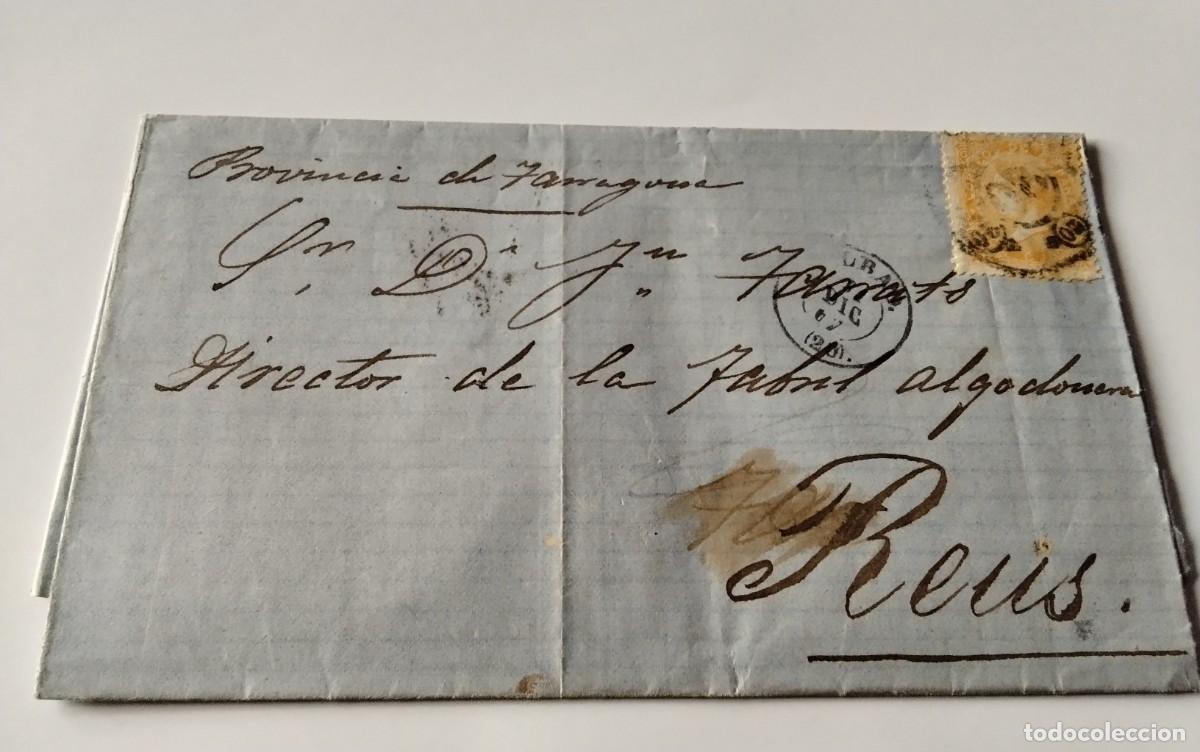 Provincia de Tarragona
Sr. Dn Jn Tarrats
Director de la Fabril algodonera
Reus.
DIC
67
(28).
todocoleccion